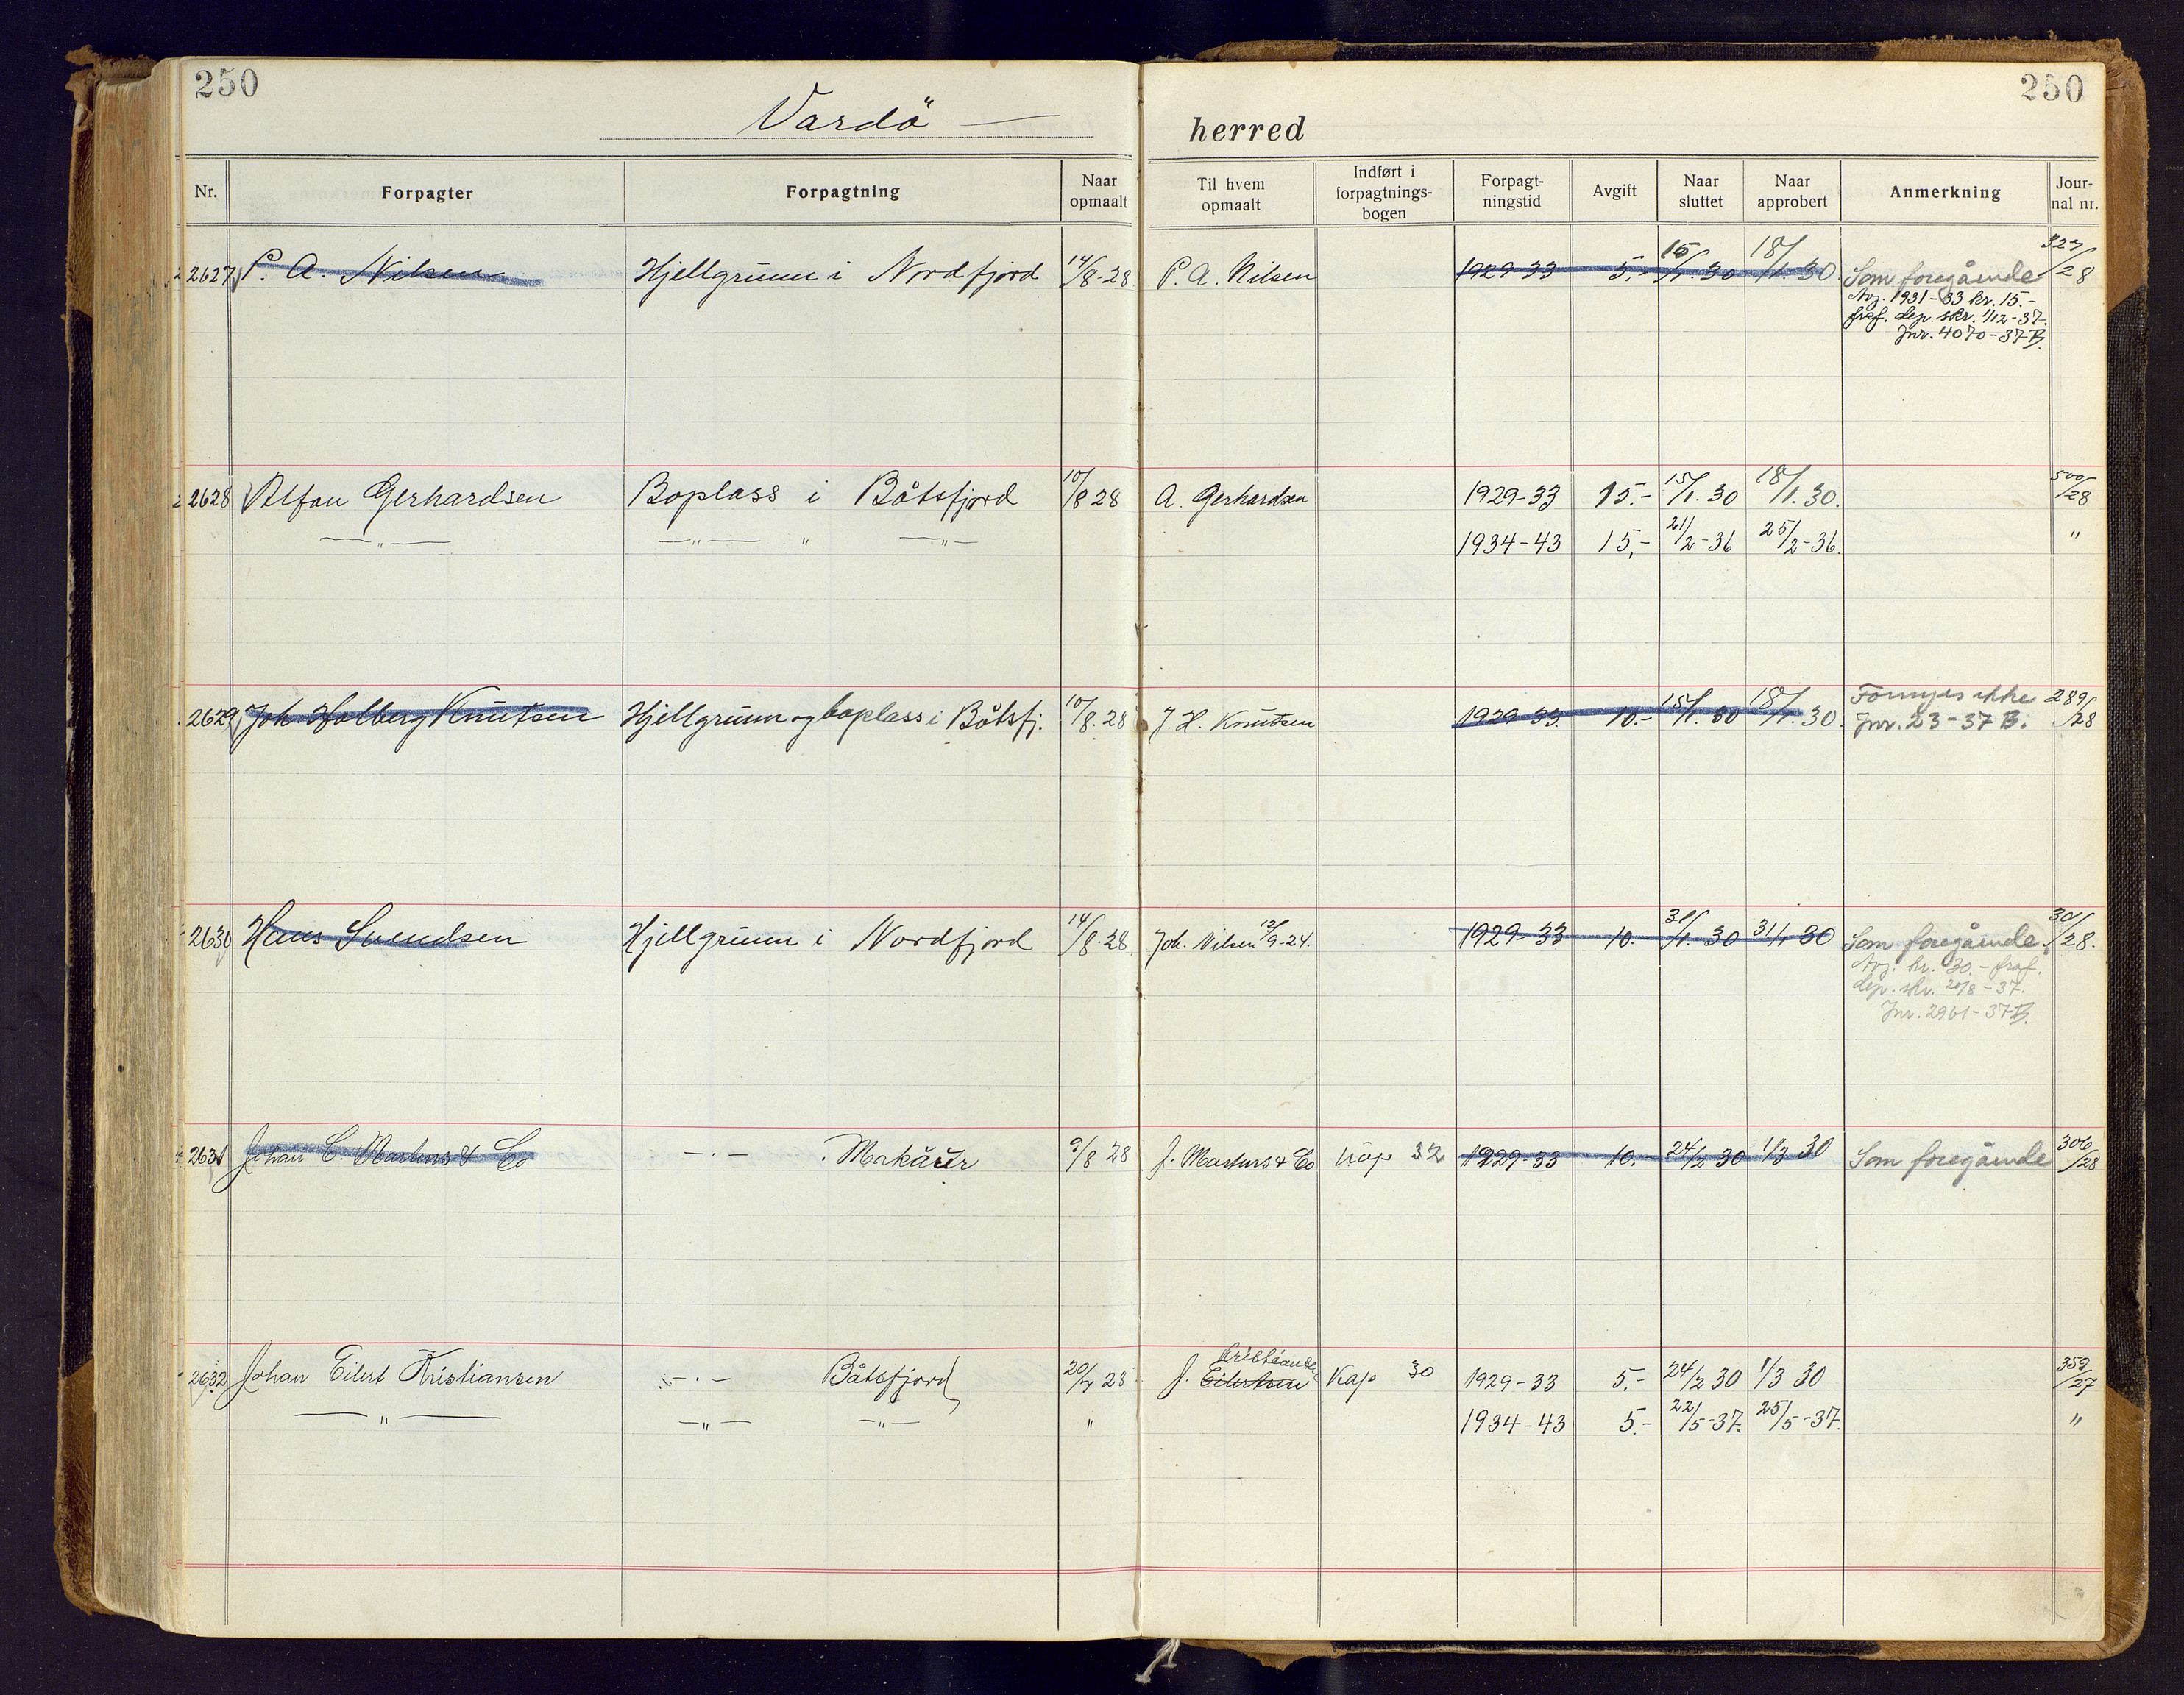 250
250
Vardö
herred
Nr. Forpagter Forpagtning Naar opmaalt Til hvem opmaalt Indført i forpagtnings-bogen Forpagt-ningstid Avgift Naar sluttet Naar approbert Anmerkning Jour-nal nr.
2627 P. A. Nilsen Hjellgrunn i Nordfjord 14/8-28 P. A. Nilsen 1929-33 5.- 15/1.30 18/1.30 Som foregående /28
Avg. 1931-33 kr. 15.-
fraf. dep. skr. 1/12-37.
Jnr. 4070-37 B.
2628 Alfon Gerhardsen Boplass i Båtsfjord 10/8 28 A. Gerhardsen 1929-33 15.- 15/1.30 18/1.30. 500/28
—„— —„— „ —„— 1934-43 15,- 21/2-36 25/2-36. "
2629 Joh. Holberg Knutsen Hjellgrunn og boplass i Båtsfj. 10/8.28 J. H. Knutsen 1929-33. 10.- 15/1.30 18/1.30. Fornyes ikke 289/28
Jnr. 23-37 B.
2630 Hans Svendsen Hjellgrunn i Nordfjord 14/8.28 Joh. Nilsen 12/9-24. 1929-33 10.- 31/1.30 31/1 30 Som foregående. 30/28.
Avg. kr. 30.- fraf.
dep. skr. 20/8-37.
Jnr. 2961-37 B.
2631 Johan C. Martens & Co —.— . Makåur 9/8 28 J. Martens & Co Kap 32 1929-33 10.- 24/2 30 1/3 30 Som foregående 306/28
2632 Johan Eilert Kristiansen —.— Båtsfjord 20/7 28 J. Eilertsen Kristiansen Kap 30 1929-33 5.- 24/2 30 1/3 30 359/27
—„— —„— —„— " 1934-43 5.- 22/5-37. 25/5-37. "